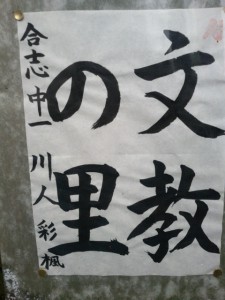 文教
の里
合志中一 川人 彩楓